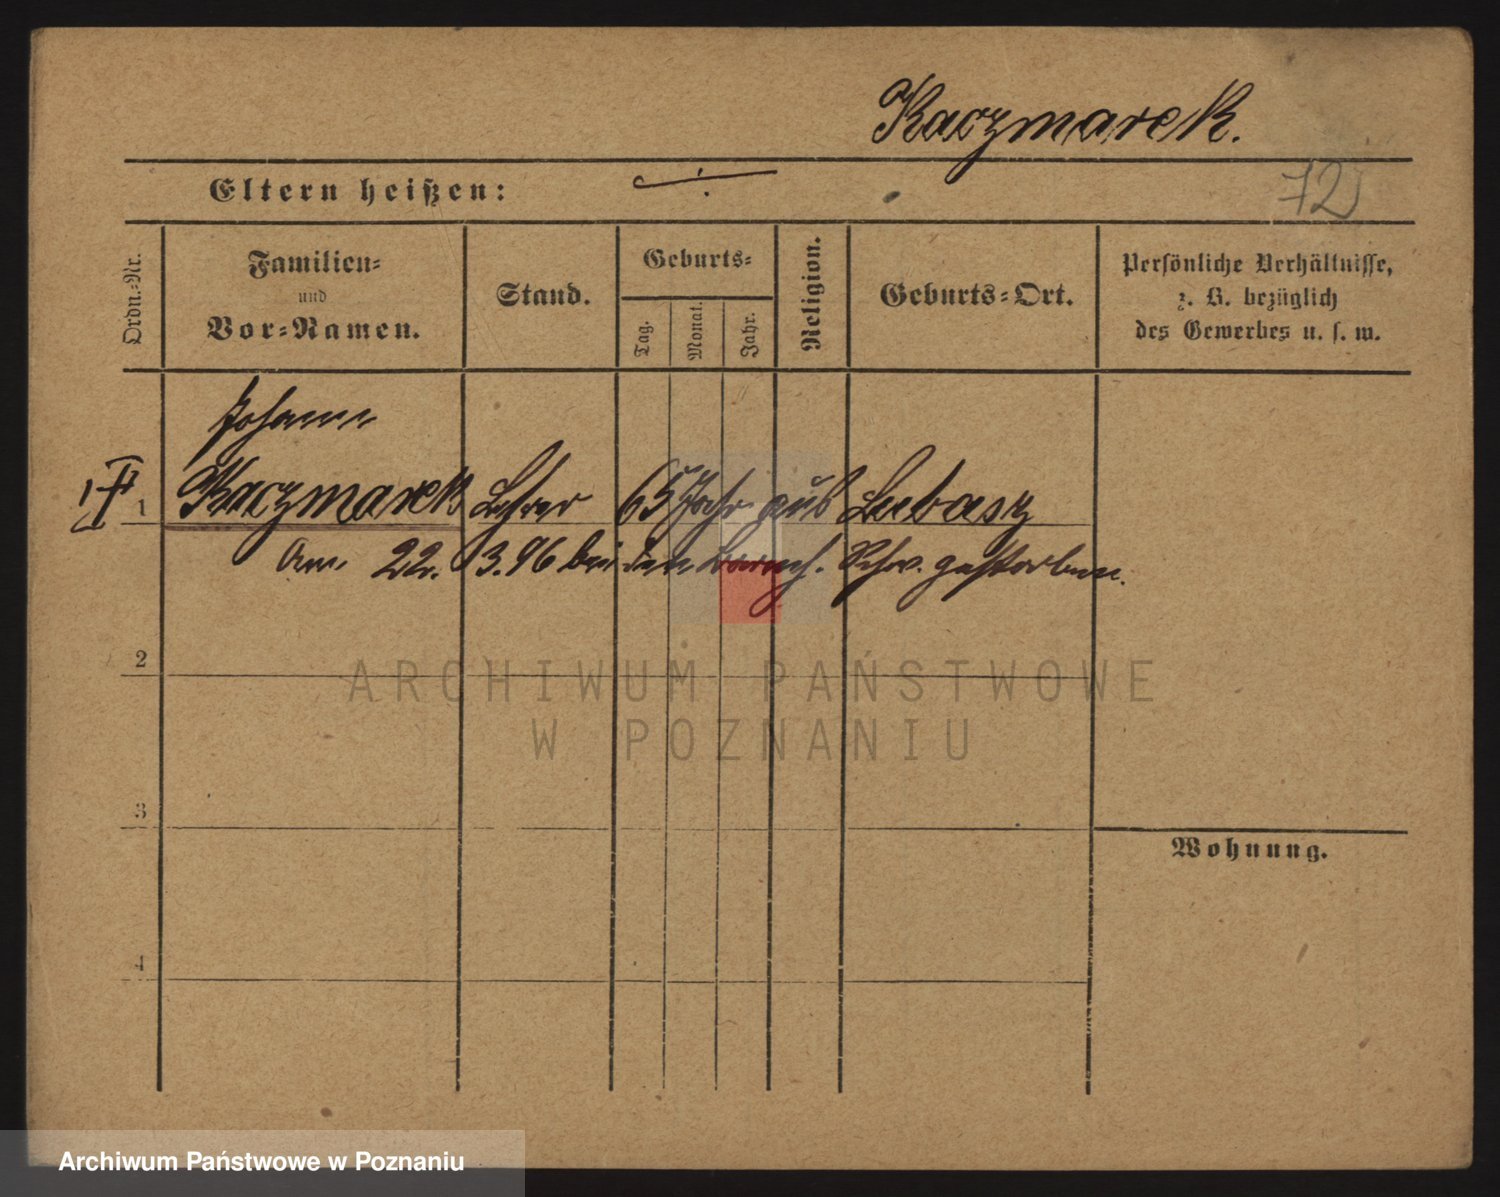 Kaczmarek.
Eltern heißen: ./.
72
Ordn.-Nr.
Familien-
und
Vor-Namen.
Stand.
Geburts-
Tag.
Monat.
Jahr.
Religion.
Geburts-Ort.
Persönliche Verhältnisse,
z. B. bezüglich
des Gewerbes u. s. w.
Johann
1 Kaczmarek Lehrer 65 Jahr aus Lubasz
Am 22. 3. 96 bei den barmh. Schw. gestorben.
2
ARCHIWUM PAŃSTWOWE
W POZNANIU
3
Wohnung.
4
Archiwum Państwowe w Poznaniu